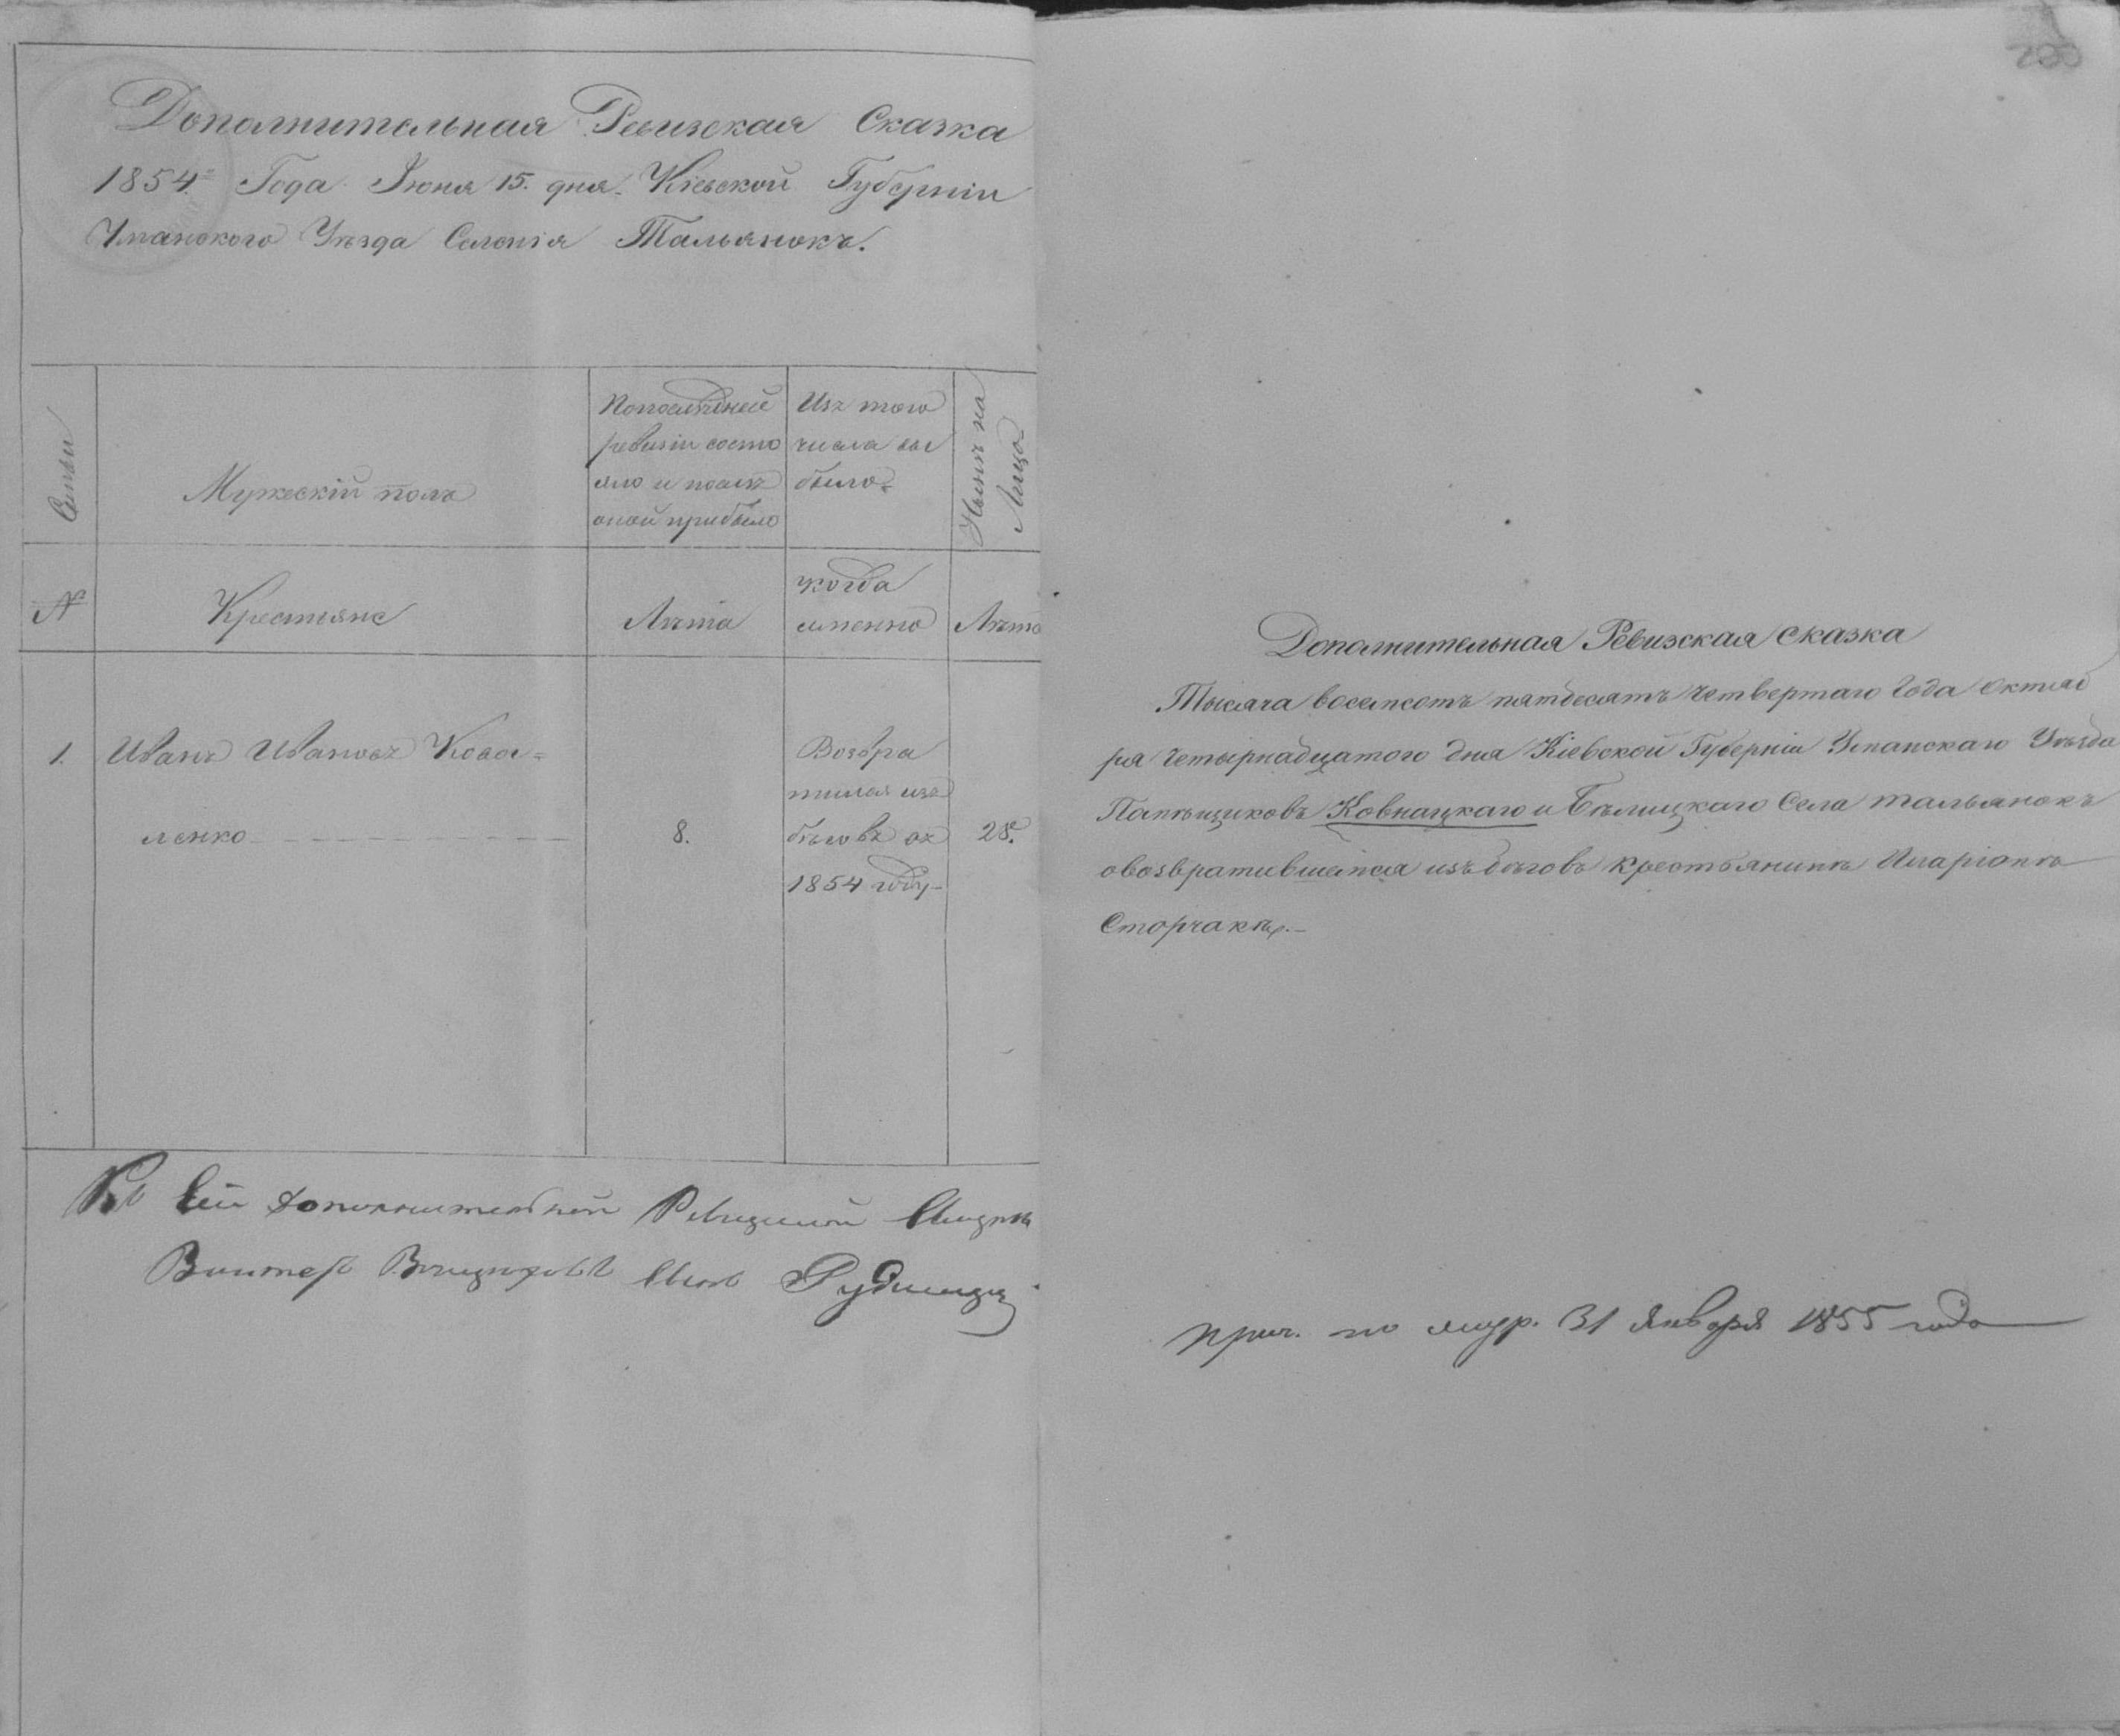 Дополнительная Ревизская Сказка
1854го Года Июня 15. дня. Кіевской Губерніи
Уманского Уѣзда Селенія Тальянокъ.
Семьи
Мужескій полъ
Попослѣдней
ревизіи состо
яло и послѣ
оной прибыло
Изъ того
числа вы
было
Нынѣ на
Лицо
№
Крестьяне
Лѣта
когда
именно
Лѣта
1.
Иванъ Ивановъ Кова=
ленко
8.
Возвра
тился изъ
бѣговъ въ
1854 году
28.
Къ сей дополнительной Ревизской Сказке
Рудницкій
200
Дополнительная Ревизская сказка
Тысяча восемсотъ пятдесятъ четвертаго Года Октяб
ря четырнадцатого дня Кіевской Губерніи Уманскаго Уѣзда
Помѣщиковъ Ковнацкаго и Бѣлицкаго Села Тальянокъ
овозвратившемся изъ бѣговъ крестьянинѣ Иларіонѣ
Сторчакѣ.
31 Января 1855 года